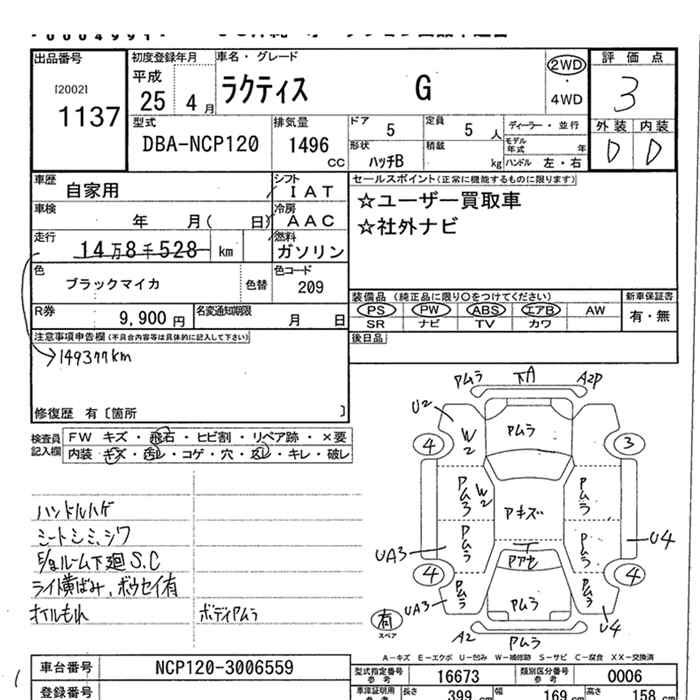 出品番号
[2002]
1137
初度登録年月
平成
25 4月
車名・グレード
ラクティス G
2WD
・
4WD
評価点
3
外装 内装
D D
型式
DBA-NCP120
排気量
1496
CC
ドア
5
定員
5 人
ディーラー・並行
形状
ハッチB
積載
kg
モデル年式 年
ハンドル 左・右
車歴
自家用
シフト
IAT
車検
年 月( 日)
冷房
AAC
走行
14万8千528 km
燃料
ガソリン
色
ブラックマイカ
色替
色コード
209
R券
9,900円
名変通知期限
月 日
セールスポイント(正常に機能するものに限ります)
☆ユーザー買取車
☆社外ナビ
装備品(純正品に限り○をつけてください)
新車保証書
PS PW ABS エアB AW
有・無
SR ナビ TV カワ
後日品
注意事項申告欄(不具合内容等は具体的に記入して下さい)
→149377km
修復歴 有〔箇所 〕
検査員記入欄
FW キズ・飛石・ヒビ割・リペア跡・×要
内装・キズ・汚レ・コゲ・穴・スレ・キレ・破レ
ハンドルハゲ
シートシミ、シワ
E/gルーム下廻S.C
ライト黄ばみ、ボウセイ有
オイルもれ
ボディアムラ
Pムラ 下A A2P
U2
W2
Pムラ
4 3
PムラW2
Pムラ
Pキズ
UA3
Pムラ
Pムラ
U4
PアセP
4 4
UA3
Pムラ
Pムラ
Pムラ
U4
有
スペア
A2
Pムラ
A-キズ E-エクボ U-凹み W-補修跡 S-サビ C-腐食 XX-交換済
車台番号
NCP120-3006559
型式指定番号
参考
16673
類別区分番号
参考
0006
登録番号
車庫証明用
参考
長さ
399 cm
幅
169 cm
高さ
158 cm